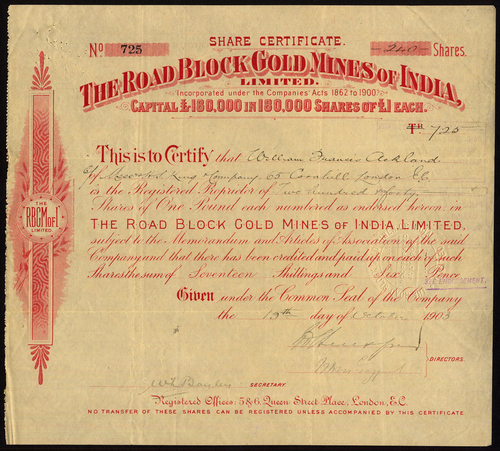 SHARE CERTIFICATE.
No 725
240 Shares.
THE ROAD BLOCK GOLD MINES OF INDIA,
LIMITED.
Incorporated under the Companies' Acts 1862 to 1900
CAPITAL £180,000 IN 180,000 SHARES OF £1 EACH.
Tr. 725
This is to Certify that William Francis Ackland
of & Company 65 Cornhill London E.C.
is the Registered Proprietor of Two hundred & forty
Shares of One Pound each numbered as endorsed hereon in
THE ROAD BLOCK GOLD MINES OF INDIA, LIMITED,
subject to the Memorandum and Articles of Association of the said
Company and that there has been credited and paid up on each of such
Shares the sum of Seventeen Shillings and Six Pence
Given under the Common Seal of the Company
the 13th day of October 1903
DIRECTORS.
SECRETARY.
Registered Offices; 5 & 6, Queen Street Place, London, E.C.
NO TRANSFER OF THESE SHARES CAN BE REGISTERED UNLESS ACCOMPANIED BY THIS CERTIFICATE
THE
RBGM of I
LIMITED.